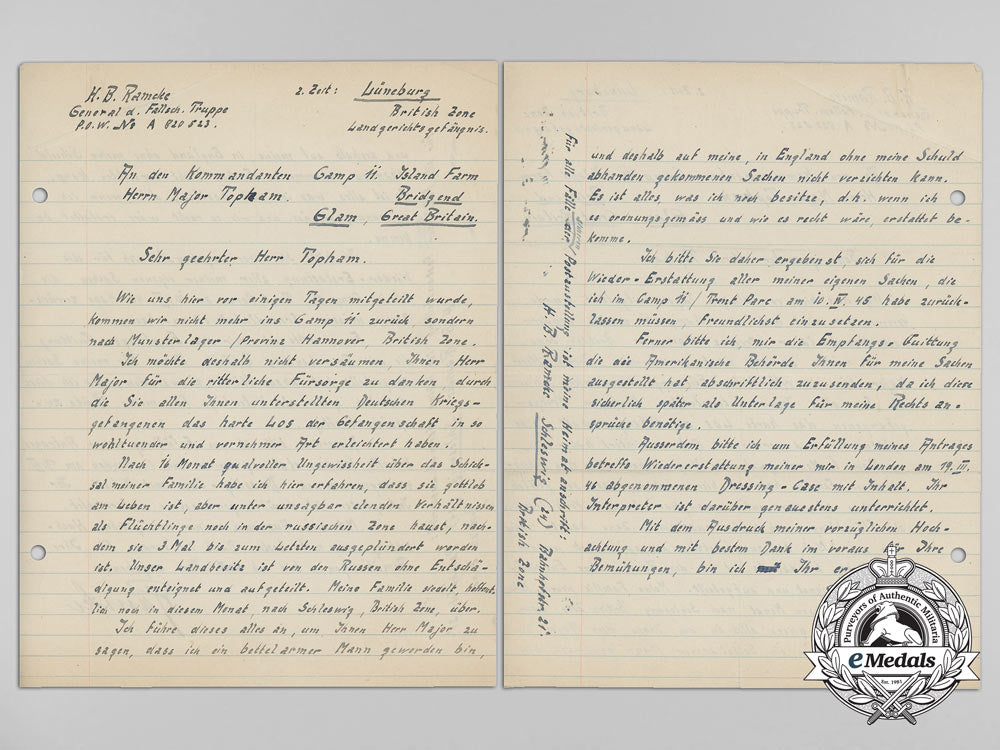 H. B. Ramcke
General d. Fallsch. Truppe
P.O.W. No A 820 523.
z. Zeit: Lüneburg
British Zone
Landgerichtsgefängnis.
An den Kommandanten Camp 11. Island Farm
Herrn Major Topham. Bridgend
Glam, Great Britain.
Sehr geehrter Herr Topham.
Wie uns hier vor einigen Tagen mitgeteilt wurde,
kommen wir nicht mehr ins Camp 11 zurück sondern
nach Munsterlager / Provinz Hannover, British Zone.
Ich möchte deshalb nicht versäumen, Ihnen, Herr
Major für die ritterliche Fürsorge zu danken durch
die Sie allen Ihnen unterstellten Deutschen Kriegs-
gefangenen das harte Los der Gefangenschaft in so
wohltuender und vornehmer Art erleichtert haben.
Nach 16 Monat qualvoller Ungewissheit über das Schick-
sal meiner Familie habe ich hier erfahren, dass sie gottlob
am Leben ist, aber unter unsagbar elenden Verhältnissen
als Flüchtlinge noch in der russischen Zone haust, nach-
dem sie 3 Mal bis zum Letzten ausgeplündert worden
ist. Unser Landbesitz ist von den Russen ohne Entschä-
digung enteignet und aufgeteilt. Meine Familie siedelt, hoffent-
lich noch in diesem Monat, nach Schleswig, British Zone, über.
Ich führe dieses alles an, um Ihnen Herr Major zu
sagen, dass ich ein bettelarmer Mann geworden bin,
und deshalb auf meine, in England ohne meine Schuld
abhanden gekommenen Sachen nicht verzichten kann.
Es ist alles, was ich noch besitze, d.h. wenn ich
es ordnungsgemäss und wie es recht wäre, erstattet be-
komme.
Ich bitte Sie daher ergebenst, sich für die
Wieder-Erstattung aller meiner eigenen Sachen, die
ich im Camp 11 / Trent Parc am 10. IV. 45 habe zurück-
lassen müssen, freundlichst einzusetzen.
Ferner bitte ich, mir die Empfangs-Quittung
die die Amerikanische Behörde Ihnen für meine Sachen
ausgestellt hat abschriftlich zuzusenden, da ich diese
sicherlich später als Unterlage für meine Rechts an-
sprüche benötige.
Ausserdem bitte ich um Erfüllung meines Antrages
betreffs Wiedererstattung meiner mir in London am 19. III.
46 abgenommenen Dressing-Case mit Inhalt. Ihr
Interpreter ist darüber genauestens unterrichtet.
Mit dem Ausdruck meiner vorzüglichen Hoch-
achtung und mit bestem Dank im voraus für Ihre
Bemühungen, bin ich Ihr er
Für alle Fälle der Postzustellung ist meine Heimatanschrift:
H. B. Ramcke Schleswig (24) Bahnhofstr. 21.
British Zone
Purveyors of Authentic Militaria
eMedals
Est. 1981